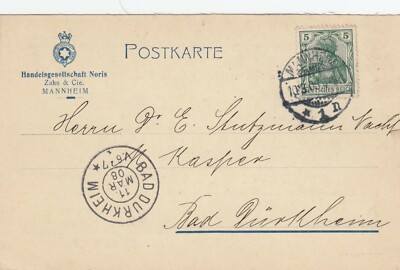 POSTKARTE
Handelsgesellschaft Noris
Zahn & Cie.
MANNHEIM
5 5
MANNHEIM
* 1 n
Herrn Dr. E Stutzmann Nachf
Kasper
Bad Dürkheim
BAD DÜRKHEIM
11
MAR
08
V.6-7